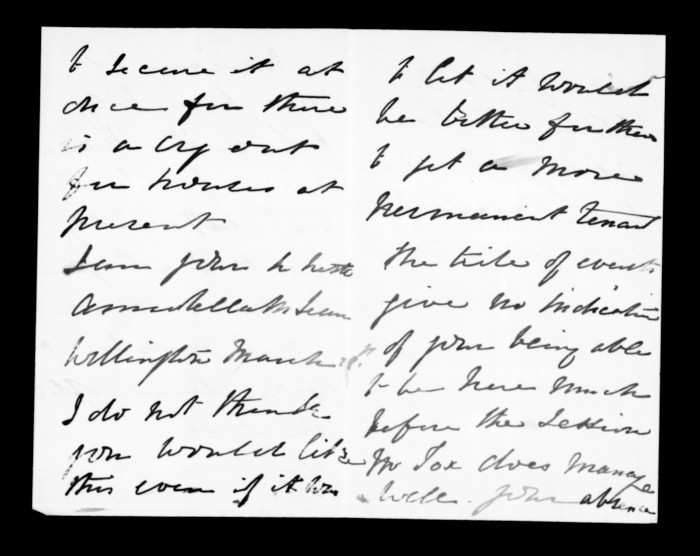 to secure it at
once for there
is a cry out
for houses at
present
I am yours
Annabella McLean
Wellington March
I do not think
you would like
this even if it was
to let it would
be better for them
to get a more
permanent tenant
the tide of events
give no indication
of your being able
to be here much
before the Session
Mr Fox does manage
well. your absence